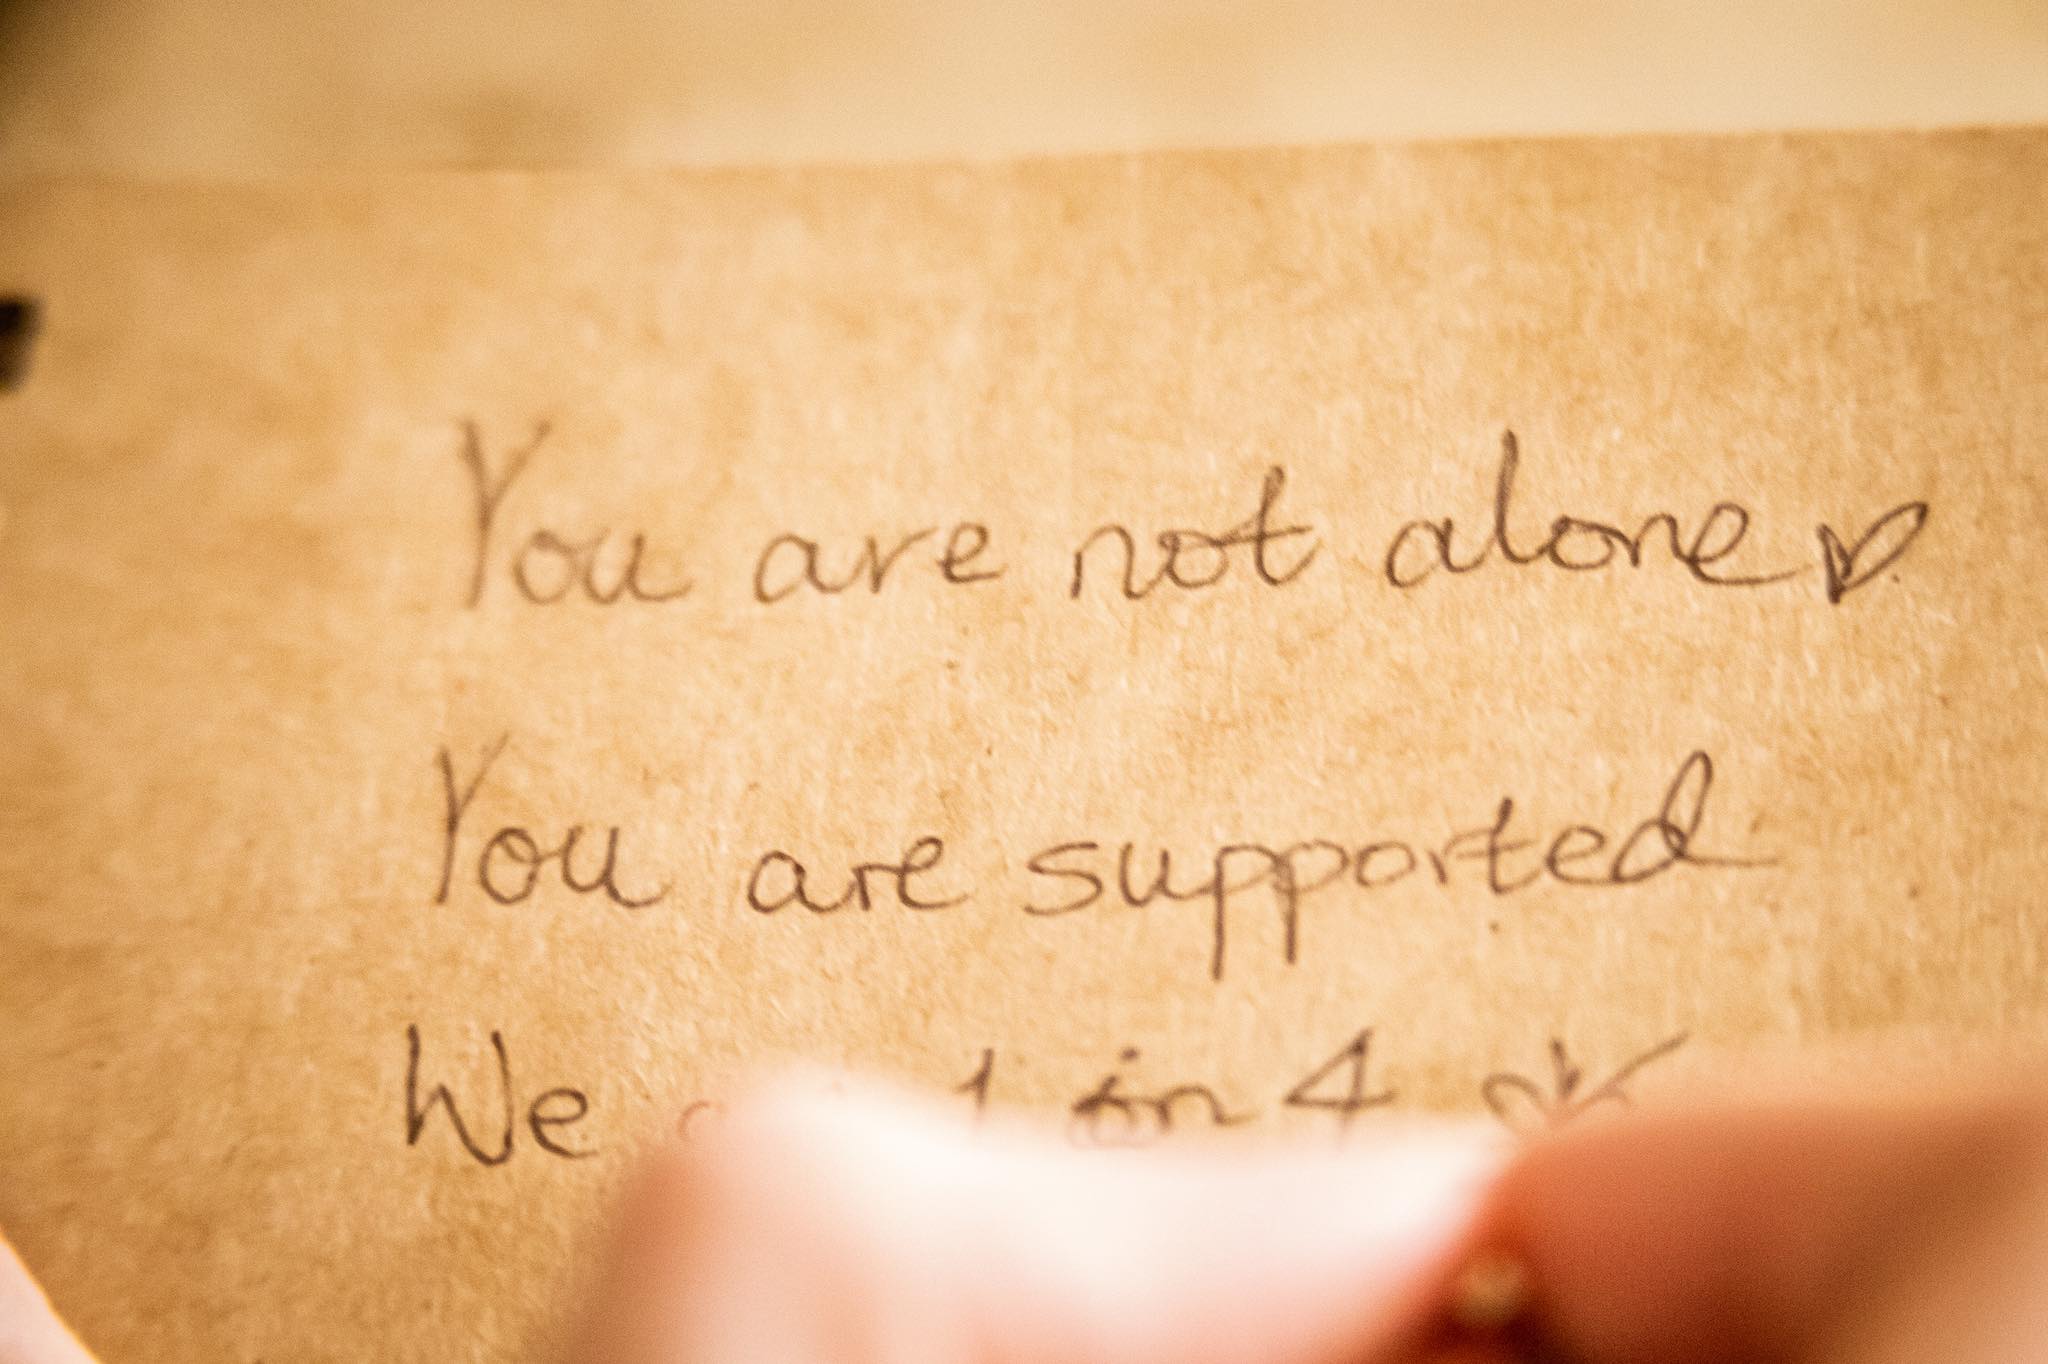 You are not alone ♡
You are supported
We 1 in 4